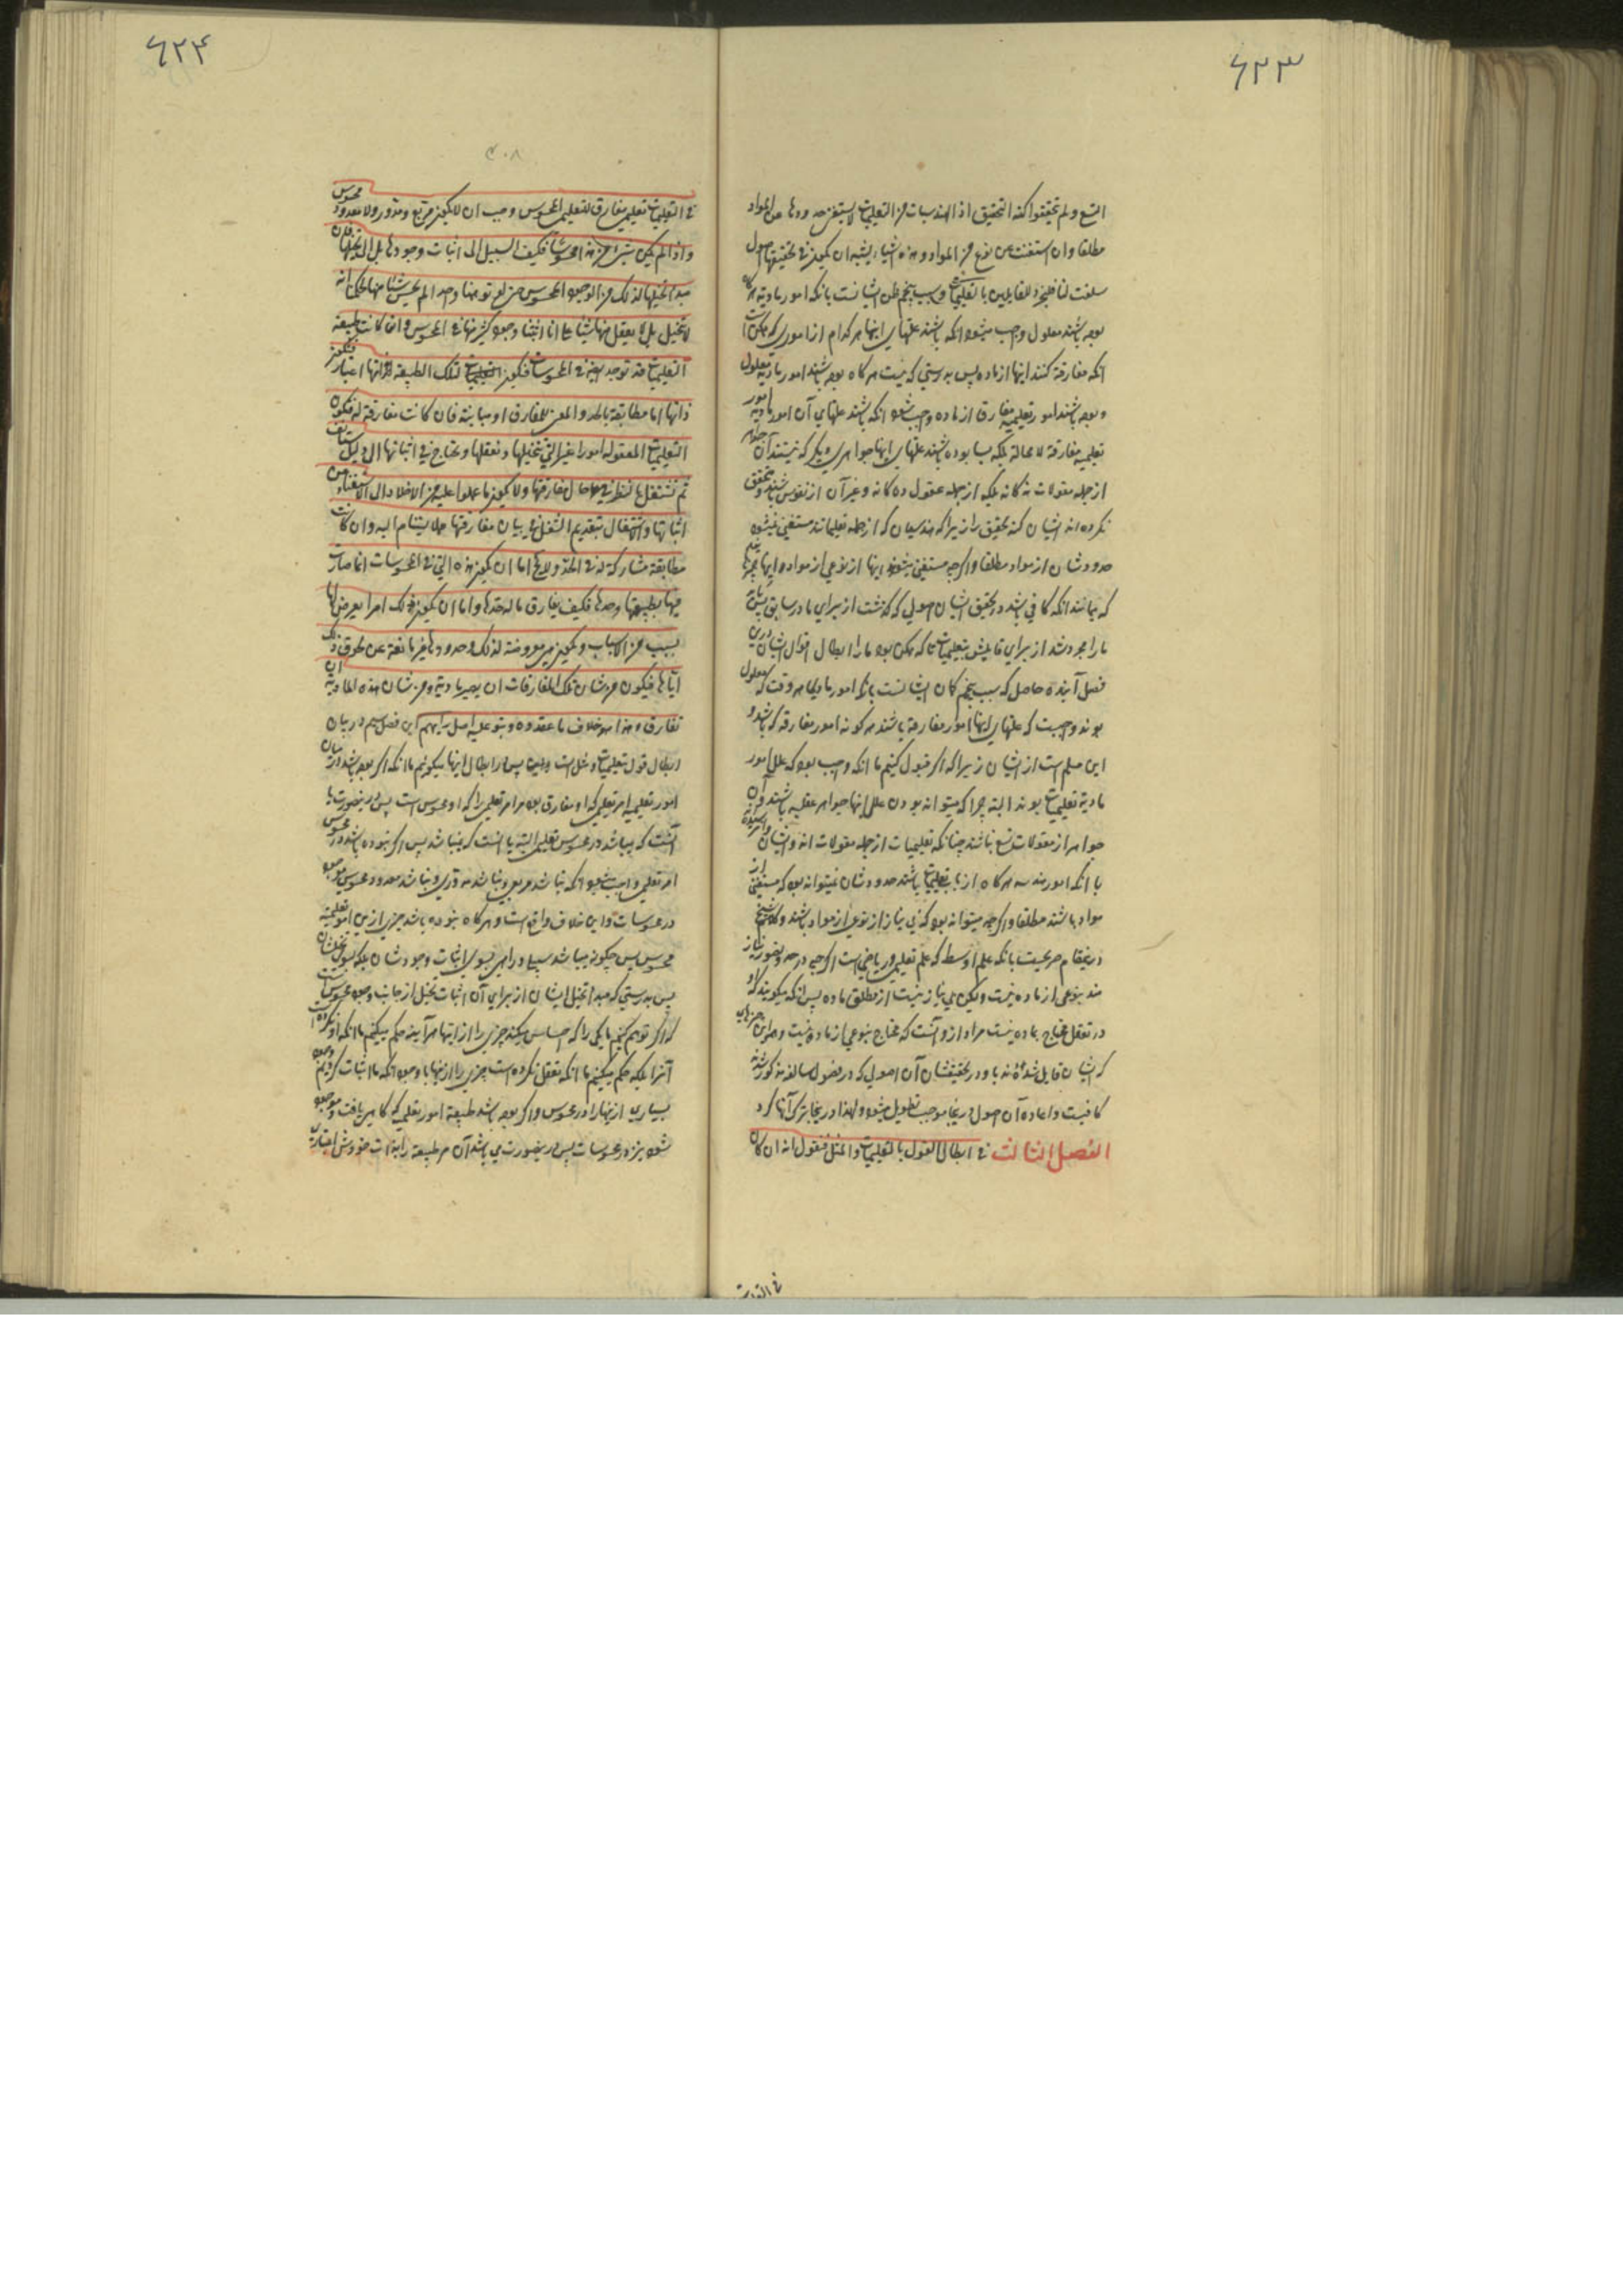 ٦٢٣
التسع ولم تحققوا كنه التحقيق اذ الهندسيات من التعليميات لا يستغنى حدودها عن المواد
مطلقا وان استغنت عن نوع من المواد وهذه اشياء يشبه ان يكون فى تحقيقها اصول
سلفت لنا فليجرد للقايلين بالتعليميات وسبب پنجم ظن ايشانست بانكه امور ماديه هر كاه
بوده باشند معلول واجب ميشود انكه باشند علتهاى اينها هر كدام از امورى كه ممكن است
انكه مفارقة كنند اينها از ماده پس بدرستى كه نيست هر كاه بوده باشند امور ماديه معلول
وبوده باشند امور تعليميه مفارق از ماده واجب شود انكه باشند علتهاى آن امور ماديه امور
تعليميه مفارقة لا محالة بلكه بسا بوده باشند علتهاى اينها جواهرى ديكر كه نيستند آن جواهر
از جمله مقولات نه كانه بلكه از جمله عقول ده كانه وغير آن از نفوس باشند وتحقق
نكرده اند ايشان كنه تحقيق را زيرا كه هندسيات كه از جمله تعليماتند مستغنى نميشود
حدودشان از مواد مطلقا واكر چه مستغنى ميشوند اينها از نوعى از مواد و اينها چيزها
كه ميمانند انكه كافى باشد در تحقيق ايشان اصولى كه كذشت از براى ما در سابق پس بايد
ما را مجرد شد از براى قايلين بتعليميات تا كه ممكن بوده ما را ابطال اقوال ايشان درين
فصل آينده حاصل كه سبب پنجم كمان ايشانست بانكه امور ماديه هر وقت كه معلول
بوند واجبست كه علتهاى اينها امور مفارقة باشند هر كونه امور مفارقه كه باشد و
اين مسلم است از ايشان زيرا كه اكر قبول كنيم ما انكه واجب بوده كه علل امور
ماديه تعليميات بوند البته چرا كه ميتوانه بودن علل اينها جواهر عقليه باشند و آن
جواهر از مقولات تسع نباشند چنانكه تعليميات از جمله مقولات اند وايشان
با انكه امور هندسه هر كاه از باب تعليميات باشند حدودشان نميتوانه بود كه مستغنى از
مواد باشند مطلقا واكر چه ميتوانه بود كه بى نياز از نوعى از مواد باشند وكلام شيخ
درينمقام صريحست بانكه علم اوسط كه علم تعليمى ورياضى است اكر چه در حد وتصور نياز
مند بنوعى از ماده نيست وليكن بى نياز نيست از مطلق ماده پس انكه ميكويند كه او
در تعقل محتاج بماده نيست مراد از و آنست كه محتاج بنوعى از ماده نيست
كه ايشان قايل شده اند باو در تحقيقشان آن اصولى كه در فصول سالفه مذكور شده
كافيست واعاده آن اصول درينجا موجب تطويل ميشود ولهذا درينجا ترك آنها كرد
الفصل الثالث فى ابطال القول بالتعليميات والمثل فنقول انه ان كان
فى التعليميات
٦٢٤
٣٠٨
فى التعليميات تعليمى مفارق للتعليمى المحسوس وجب ان لا يكون مربع ومدور ولا معدود محسوس
واذا لم يكن شىء من هذا محسوسا فكيف السبيل الى اثبات وجودها بل الى تخيلها فان
مبدأ تخيلها لذلك من الوجود المحسوس حتى لو توهمنا واحدا لم يحس شيئا منها لحكمنا انه
لا يتخيل بل لا يعقل منها شيئا على انا اثبتنا وجود كثير منها فى المحسوس وان كانت طبيعة
التعليميات قد توجد ايضا فى المحسوسات فيكون لتلك الطبيعة لذاتها اعتبار فتكون
ذاتها اما مطابقة بالحد والمعنى للمفارق او مباينة فان كانت مفارقة له فتكون
التعليميات المعقوله امورا غير التى نتخيلها ونعقلها ونحتاج فى اثباتها الى دليل مستأنف
ثم نشتغل بالنظر فى حال مفارقتها ولا يكون ما عملوا عليه من الاخلاد الى الاستغناء عن
اثباتها والاشتغال بتقديم الشغل فى بيان مفارقتها عملا يستنام اليه وان كانت
مطابقة مشاركة له فى الحد ولا يخلو اما ان يكون هذه التى فى المحسوسات انما صارت
فيها بطبيعتها وحدها فكيف يفارق ما له حدها واما ان يكون ذلك امرا يعرض لها
بسبب من الاسباب ويكون هى معروضة لذلك وحدودها غير مانعة عن لحوق ذلك
اياها فيكون من شان تلك المفارقات ان يصير مادية ومن شان هذه المادية ان
تفارق وهذا هو خلاف ما عقدوه وبنوا عليه اصل رايهم اين فصل سيم در بيان
ابطال قول تعليميات ومثل است
امور تعليميه امر تعليمى كه او مفارق بوده مر امر تعليمى را كه او محسوس است پس درينصورت يا
آنست كه ميباشد در محسوس تعليمى البته يا آنست كه نميباشد پس اكر نبوده باشد در محسوس
امر تعليمى واجب ميشود انكه نباشد مربعى ونباشد مدورى ونباشد معدود محسوس
در محسوسات واين خلاف واقع است وهر كاه نبوده باشد چيزى ازين امور تعليميه
محسوس پس چكونه ميباشد سبيل وراهى بسوى اثبات وجودشان بلكه بسوى تخيلشان
پس بدرستى كه مبدأ تخيل ايشان از براى آن اثبات تخيل از جانب وجود محسوس است
كه اكر توهم كنيم ما يكى را كه احساس نميكند چيزى را از اينها هر آينه حكم ميكنيم ما انكه او تخيل نكرده
آنرا بلكه حكم ميكنيم ما انكه تعقل نكرده است چيزى را از ينها با وجود انكه ما اثبات كرديم وجود
بسيارى از ينها را در محسوس واكر بوده باشد طبيعة امور تعليمى كه كاهى يافت وموجود
شود نيز در محسوسات پس درينصورت مى باشد آن مر طبيعة را بذات خودش اعتبارى